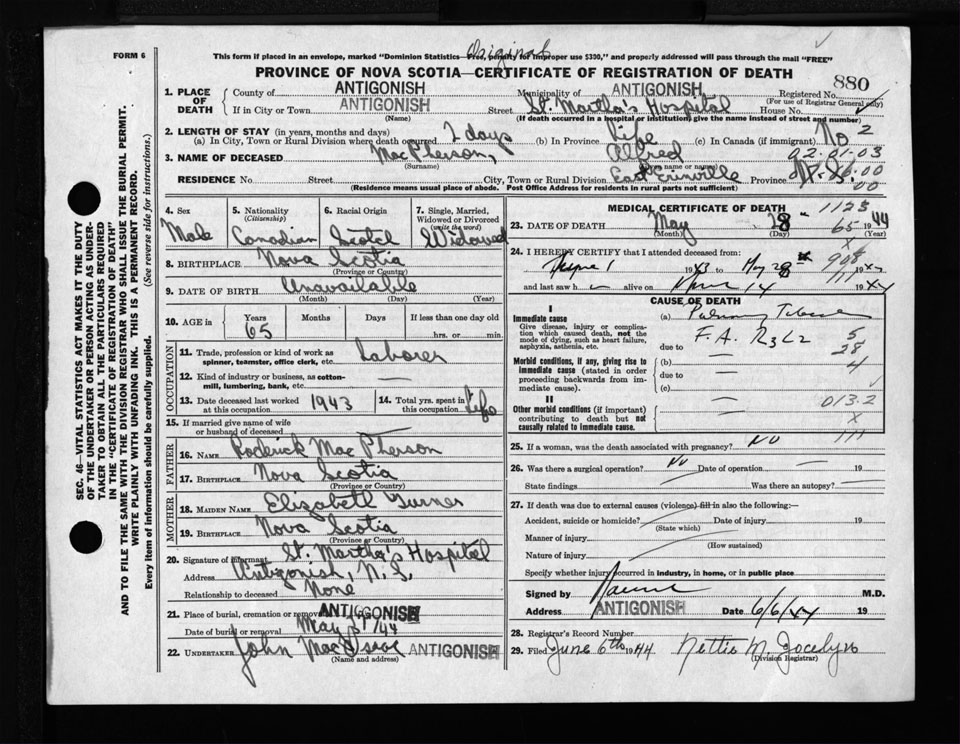 Original
FORM 6
This form if placed in an envelope, marked "Dominion Statistics—Free, penalty for improper use $300," and properly addressed will pass through the mail "FREE"
PROVINCE OF NOVA SCOTIA—CERTIFICATE OF REGISTRATION OF DEATH
880
1. PLACE OF DEATH County of ANTIGONISH Municipality of ANTIGONISH Registered No.
(For use of Registrar General only)
If in City or Town ANTIGONISH Street St. Martha's Hospital House No.
(Name) (If death occurred in a hospital or institution, give the name instead of street and number)
2. LENGTH OF STAY (in years, months and days)
(a) In City, Town or Rural Division where death occurred 2 days (b) In Province Life (c) In Canada (if immigrant) No 2
3. NAME OF DECEASED MacPherson, Alfred 02.01.03
(Surname)
RESIDENCE No Street City, Town or Rural Division East Erinville Province N.S.
00
(Residence means usual place of abode. Post Office Address for residents in rural parts not sufficient)
4. Sex 5. Nationality (Citizenship) 6. Racial Origin 7. Single, Married, Widowed or Divorced (write the word)
Male Canadian Scotch Widowed
8. BIRTHPLACE Nova Scotia
(Province or Country)
9. DATE OF BIRTH Unavailable
(Month) (Day) (Year)
10. AGE in Years Months Days If less than one day old
65 hrs. or min.
OCCUPATION
11. Trade, profession or kind of work as spinner, teamster, office clerk, etc. Laborer
12. Kind of industry or business, as cotton-mill, lumbering, bank, etc. —
13. Date deceased last worked at this occupation 1943 14. Total yrs. spent in this occupation Life
15. If married give name of wife or husband of deceased —
FATHER
16. NAME Roderick MacPherson
17. BIRTHPLACE Nova Scotia
(Province or Country)
MOTHER
18. MAIDEN NAME Elizabeth Turner
19. BIRTHPLACE Nova Scotia
(Province or Country)
20. Signature of informant St. Martha's Hospital
Address Antigonish, N.S.
Relationship to deceased None
21. Place of burial, cremation or removal ANTIGONISH
Date of burial or removal May 31/44
22. UNDERTAKER John MacIsaac ANTIGONISH
(Name and address)
MEDICAL CERTIFICATE OF DEATH 1123
23. DATE OF DEATH May 28 65 1944
(Month) (Day) (Year)
X
24. I HEREBY CERTIFY that I attended deceased from: 908
1 1943 to May 28 111 1944
and last saw h alive on 14 1944
CAUSE OF DEATH
I
Immediate cause (a)
Give disease, injury or complication which caused death, not the mode of dying, such as heart failure, asphyxia, asthenia, etc. due to F.A. R3L2 5
28
Morbid conditions, if any, giving rise to immediate cause (stated in order proceeding backwards from immediate cause). (b) 4
due to —
(c)
II
Other morbid conditions (if important) contributing to death but not causally related to immediate cause. 013.2
X
111
25. If a woman, was the death associated with pregnancy? No
26. Was there a surgical operation? No Date of operation — 19
State findings Was there an autopsy?
27. If death was due to external causes (violence) fill in also the following:—
Accident, suicide or homicide? Date of injury 19
(State which)
Manner of injury
(How sustained)
Nature of injury
Specify whether injury occurred in industry, in home, or in public place
Signed by M.D.
Address ANTIGONISH Date 6/6/44
28. Registrar's Record Number
29. Filed June 6th 1944 Nettie M. Jocelyn
(Division Registrar)
SEC. 46—VITAL STATISTICS ACT MAKES IT THE DUTY
OF THE UNDERTAKER OR PERSON ACTING AS UNDER-
TAKER TO OBTAIN ALL THE PARTICULARS REQUIRED
IN THE "CERTIFICATE OF REGISTRATION OF DEATH"
AND TO FILE THE SAME WITH THE DIVISION REGISTRAR WHO SHALL ISSUE THE BURIAL PERMIT.
WRITE PLAINLY WITH UNFADING INK. THIS IS A PERMANENT RECORD.
Every item of information should be carefully supplied. (See reverse side for instructions.)